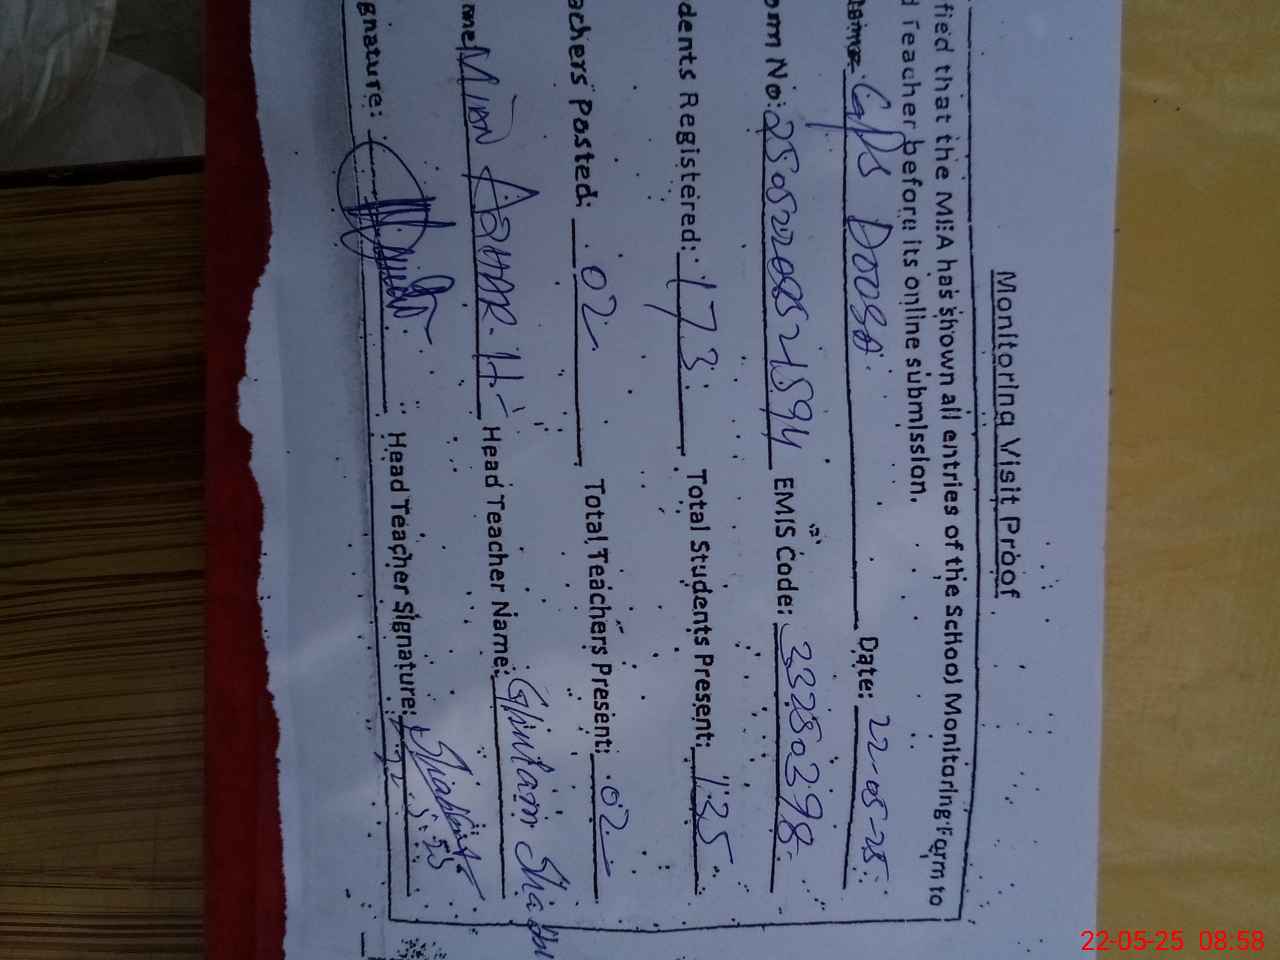 Monitoring Visit Proof
fied that the MEA has shown all entries of the School Monitoring Form to
d Teacher before its online submission.
Name: GPS DOOSA. Date: 22-05-25
orm No: EMIS Code: 33250398
dents Registered: 173 Total Students Present: 135
achers Posted: 02 Total Teachers Present: 02
ame MIAN AZHAR.H Head Teacher Name: Ghulam Shabbi
gnature: Head Teacher Signature:
22-05-25 08:58